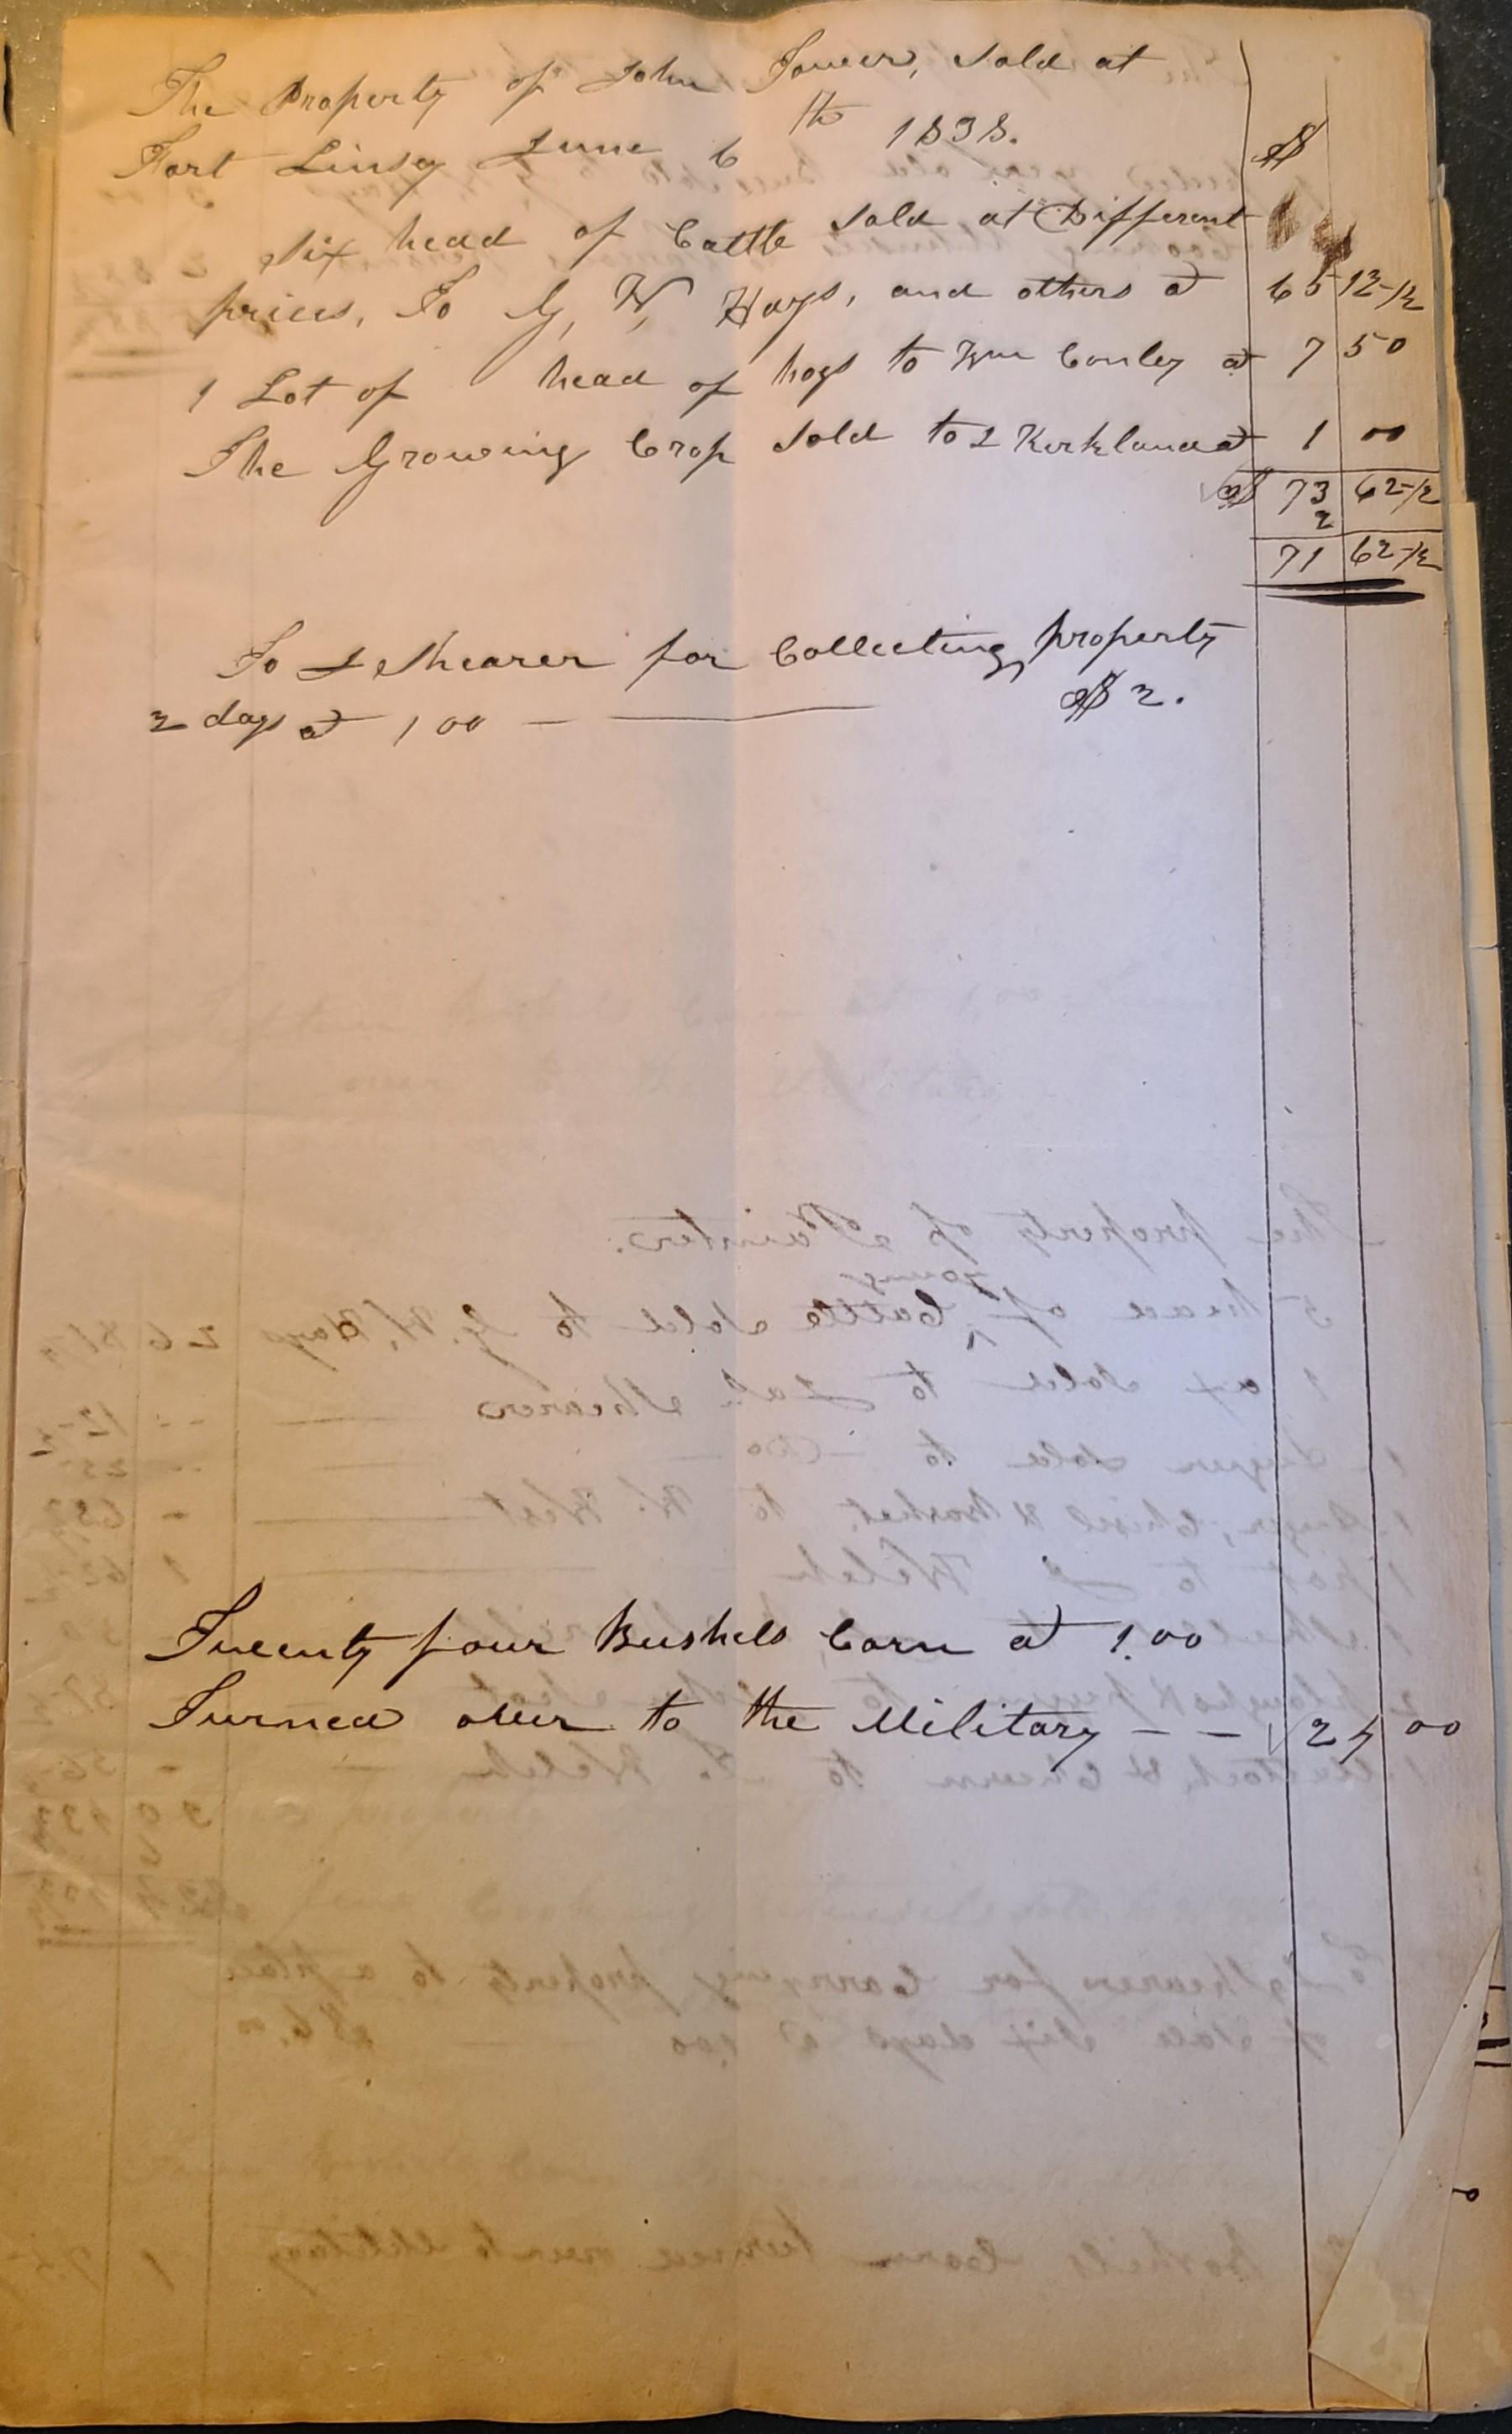 The Property of John Tower, Sold at
Fort Linsey June 6th 1838. $
Six head of Cattle Sold at Different
prices, To G, W, Hays, and others at 65 12½
1 Lot of head of hogs to Wm Conley at 7 50
The Growing Crop Sold to J Kirkland at 1 00
$ 73 62½
2
71 62½
To J Shearer for Collecting property
2 days at 1 00 — —— $ 2.
Twenty four Bushels Corn at 1.00
Turned over to the Military — — 24 00